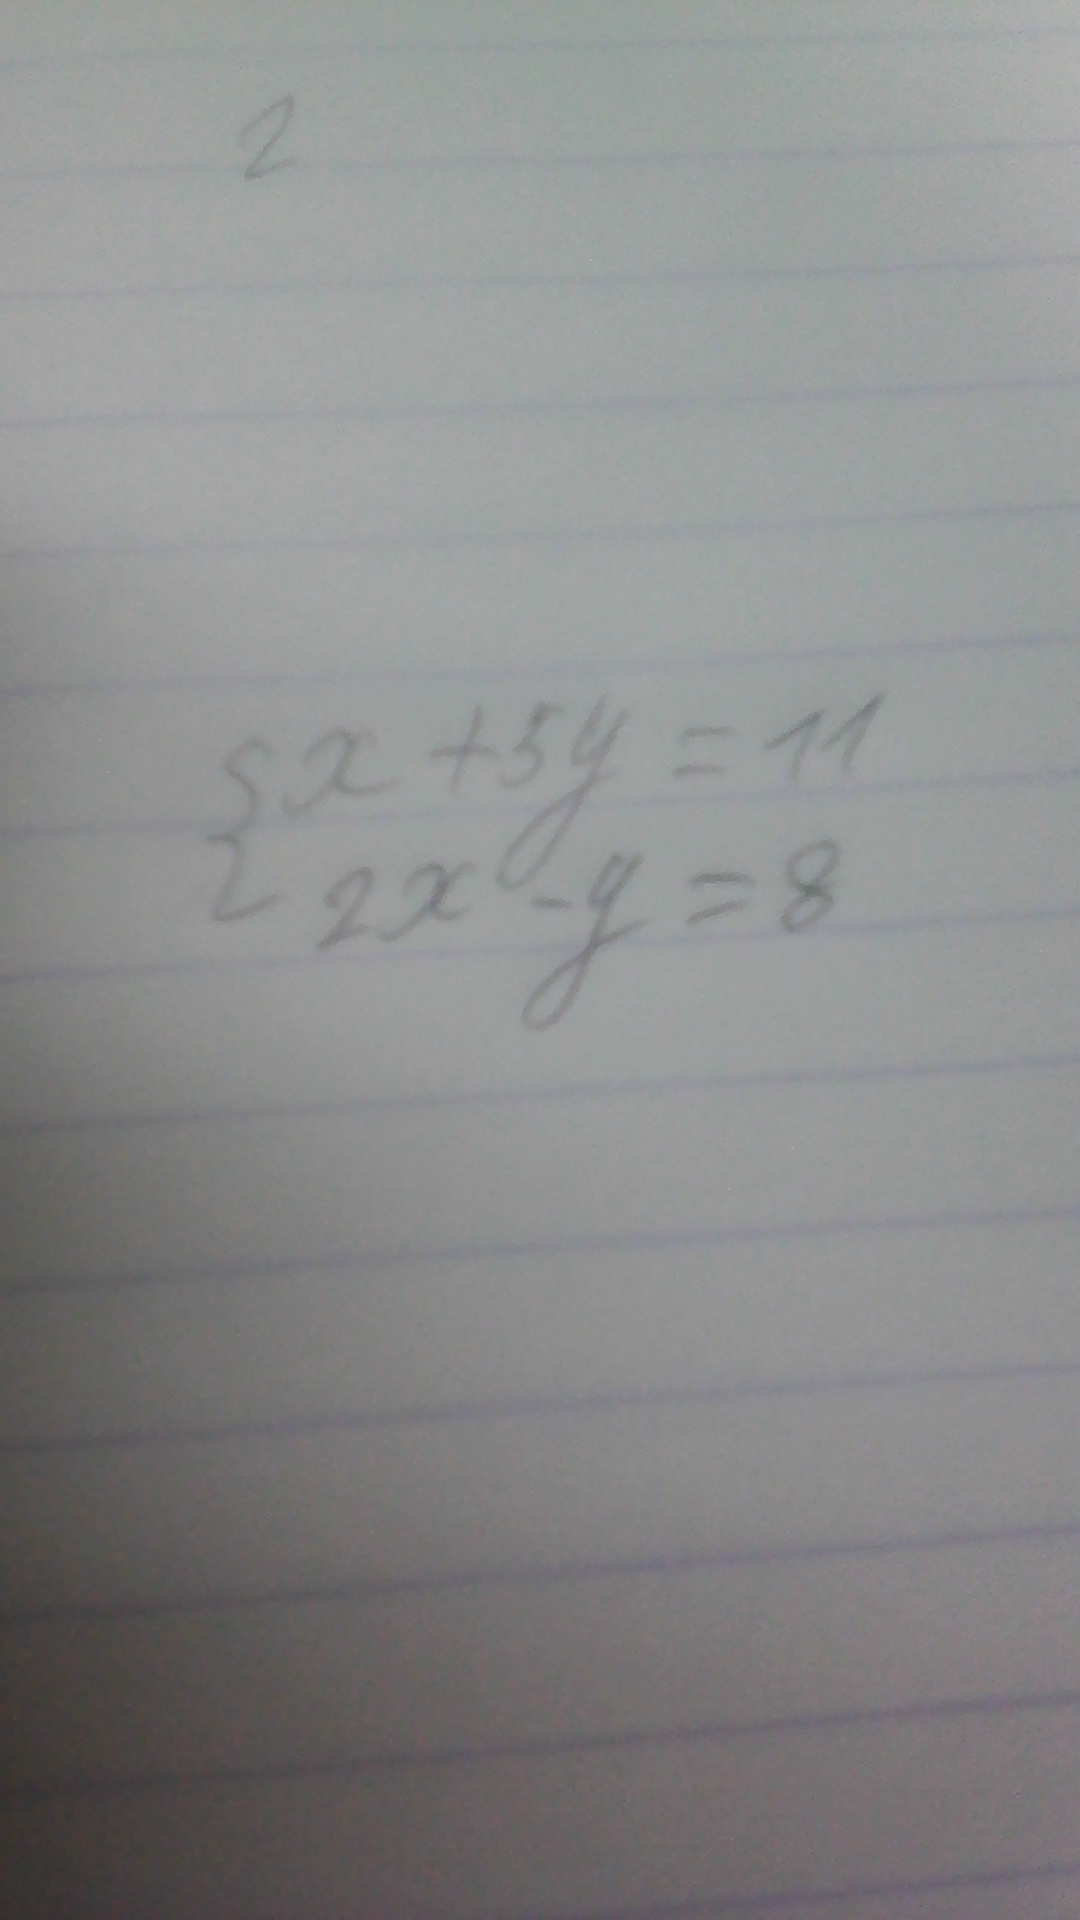 2
{ x + 5y = 11
2x - y = 8